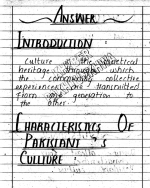 ANSWER
INTRODUCTION :
Culture is the
heritage through which
the community collective
experiences are transmitted
from one generation to
the other.
CHARACTERISTICS OF
PAKISTANI'S
CULTURE :